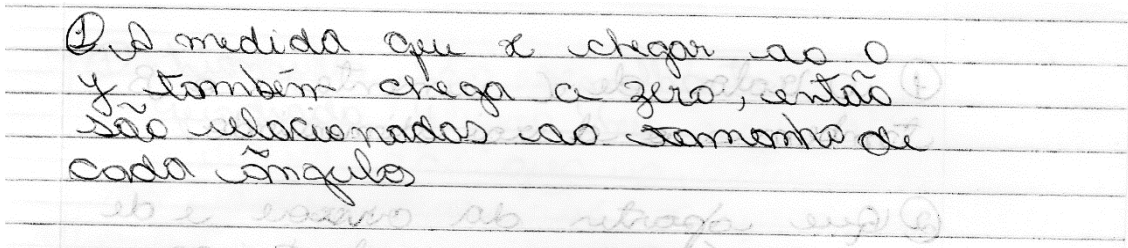 ① A medida que x chegar ao 0
y também chega a zero, então
são relacionadas ao tamanho de
cada ângulo